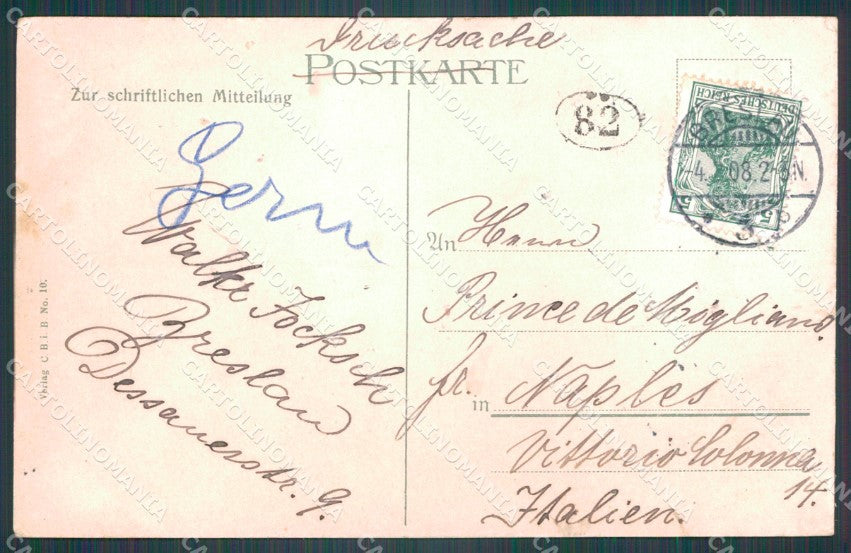 Drucksache
POSTKARTE
Zur schriftlichen Mitteilung
82
DEUTSCHES REICH
5 5
BRESLAU
-4. 08. 2-3N.
Walter Jocksch
Breslau
Dessauerstr. 9.
An Herrn
Prince de Migliano
fr. in Naples
Vittorio Colonna
14.
Italien.
Verlag C B i. B No. 10.
CARTOLINOMANIA